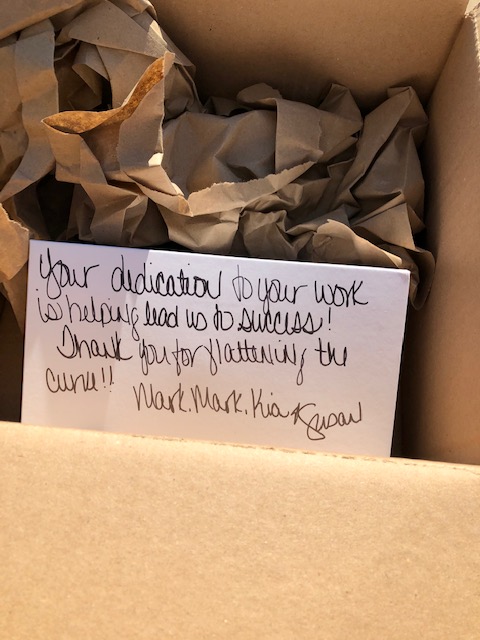 Your dedication to your work
is helping lead us to success!
Thank you for flattening the
curve!! Mark, Mark, Kia & Susan